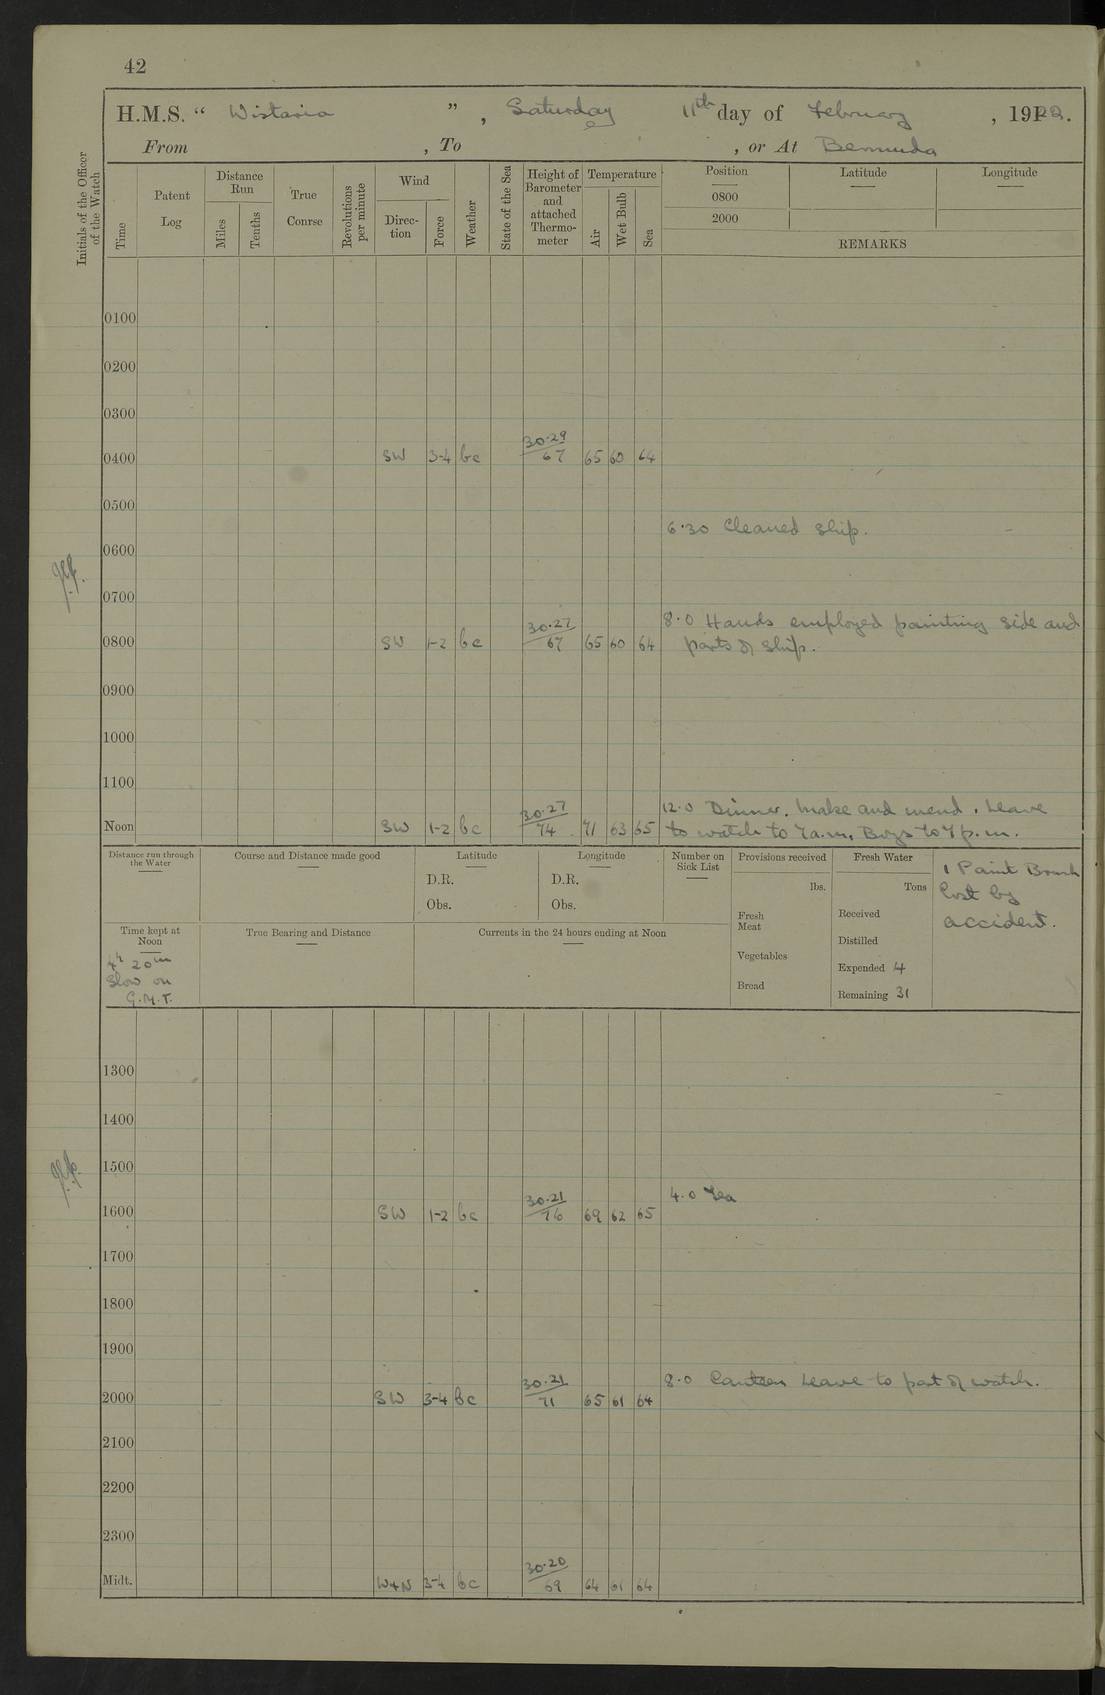 42
H.M.S. “ Wistaria ” , Saturday 11th day of February , 1922.
From , To , or At Bermuda
Initials of the Officer of the Watch
Time
Patent Log
Distance Run
Miles
Tenths
True Course
Revolutions per minute
Wind
Direc-tion
Force
Weather
State of the Sea
Height of Barometer and attached Thermo-meter
Temperature
Air
Wet Bulb
Sea
Position Latitude Longitude
0800
2000
REMARKS
0100
0200
0300
30.29
0400 SW 3-4 bc 67 65 60 64
0500
6.30 Cleaned ship.
0600
0700
8.0 Hands employed painting side and
30.27
0800 SW 1-2 bc 67 65 60 64 parts of ship.
0900
1000
1100
30.27 12.0 Dinner. Make and mend. Leave
Noon SW 1-2 bc 74 71 63 65 to watch to 7 a.m. Boys to 7 p.m.
Distance run through the Water
Course and Distance made good
Latitude
D.R.
Obs.
Longitude
D.R.
Obs.
Number on Sick List
Provisions received
lbs.
Fresh Meat
Vegetables
Bread
Fresh Water
Tons
Received
Distilled
Expended 4
Remaining 31
1 Paint Brush
lost by
accident.
Time kept at Noon
4h 20m
Slow on
G.M.T.
True Bearing and Distance
Currents in the 24 hours ending at Noon
1300
1400
1500
30.21 4.0 Tea
1600 SW 1-2 bc 76 69 62 65
1700
1800
1900
30.21 8.0 Canteen Leave to part of watch.
2000 SW 3-4 bc 71 65 61 64
2100
2200
2300
30.20
Midt. WxN 3-4 bc 69 64 61 64